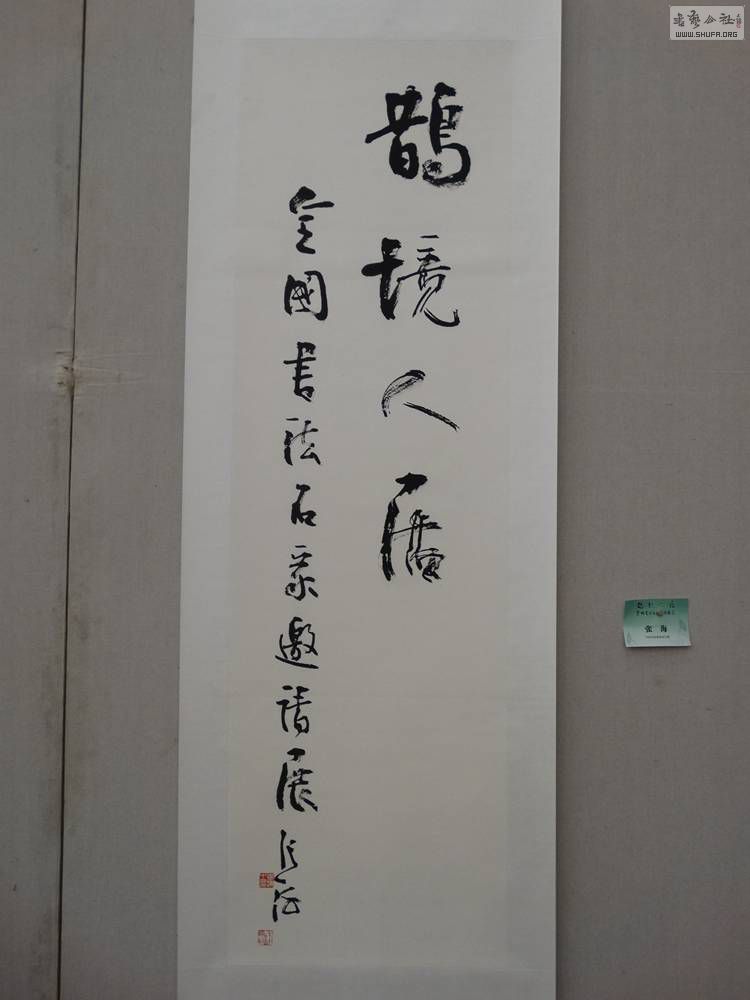 鹊境人居
全国书法百家邀请展 张海
张海
书艺公社
WWW.SHUFA.ORG